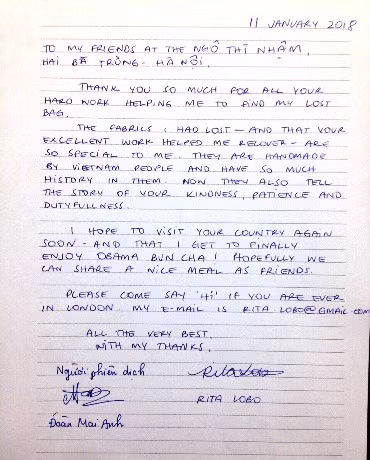 11 JANUARY 2018
TO MY FRIENDS AT THE NGÔ THÌ NHẬM,
HAI BÀ TRƯNG - HÀ NỘI.
THANK YOU SO MUCH FOR ALL YOUR
HARD WORK HELPING ME TO FIND MY LOST
BAG.
THE FABRICS I HAD LOST - AND THAT YOUR
EXCELLENT WORK HELPED ME RECOVER - ARE
SO SPECIAL TO ME. THEY ARE HANDMADE
BY VIETNAM PEOPLE AND HAVE SO MUCH
HISTORY IN THEM. NOW THEY ALSO TELL
THE STORY OF YOUR KINDNESS, PATIENCE AND
DUTYFULLNESS.
I HOPE TO VISIT YOUR COUNTRY AGAIN
SOON - AND THAT I GET TO FINALLY
ENJOY OBAMA BUN CHA! HOPEFULLY WE
CAN SHARE A NICE MEAL AS FRIENDS.
PLEASE COME SAY 'Hi' IF YOU ARE EVER
IN LONDON. MY E-MAIL IS RITA LOBO@GMAIL.COM
ALL THE VERY BEST.
WITH MY THANKS,
Người phiên dịch
Rita Lobo
RITA LOBO
Đoàn Mai Anh